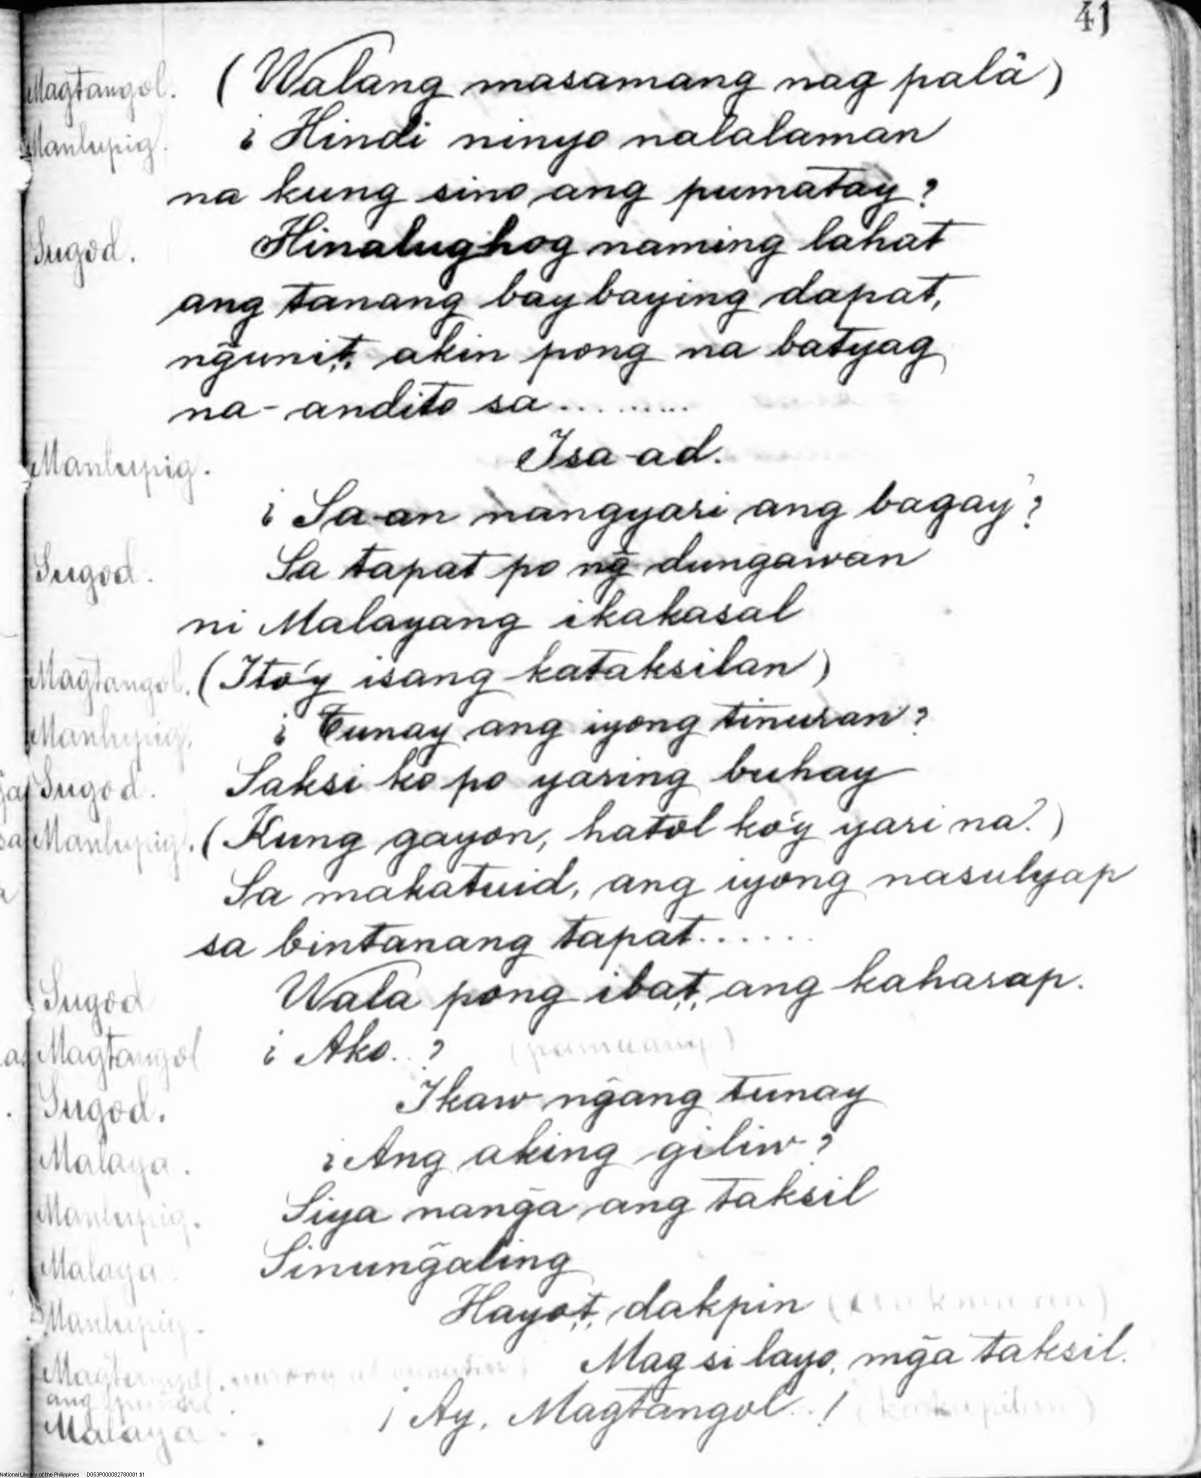 41
Magtangol. (Walang masamang nag palâ)
Manlupig. ¿ Hindi ninyo nalalaman
na kung sino ang pumatay?
Sugod. Hinalughog naming lahat
ang tanang baybaying dapat,
ng̃unit, akin pong na batyag
na-andito sa.........
Manlupig. Isa-ad.
¿ Sa-an nangyari ang bagay?
Sugod. Sa tapat po ng̃ dung̃awan
ni Malayang ikakasal
Magtangol. (Ito'y isang kataksilan)
Manlupig. ¿ Tunay ang iyong tinuran?
Sugod. Saksi ko po yaring buhay
Manlupig. (Kung gayon, hatol ko'y yari na.)
Sa makatuid, ang iyong nasulyap
sa bintanang tapat......
Sugod Wala pong ibat, ang kaharap.
Magtangol ¿ Ako..?
Sugod. Ikaw ng̃ang tunay
Malaya. ¿ Ang aking giliw?
Manlupig. Siya nang̃a ang taksil
Malaya. Sinung̃aling
Manlupig. Hayot, dakpin
Magtangol. Mag si layo, mg̃a taksil.
ang
Malaya. ¡ Ay, Magtangol..!
National Library of the Philippines